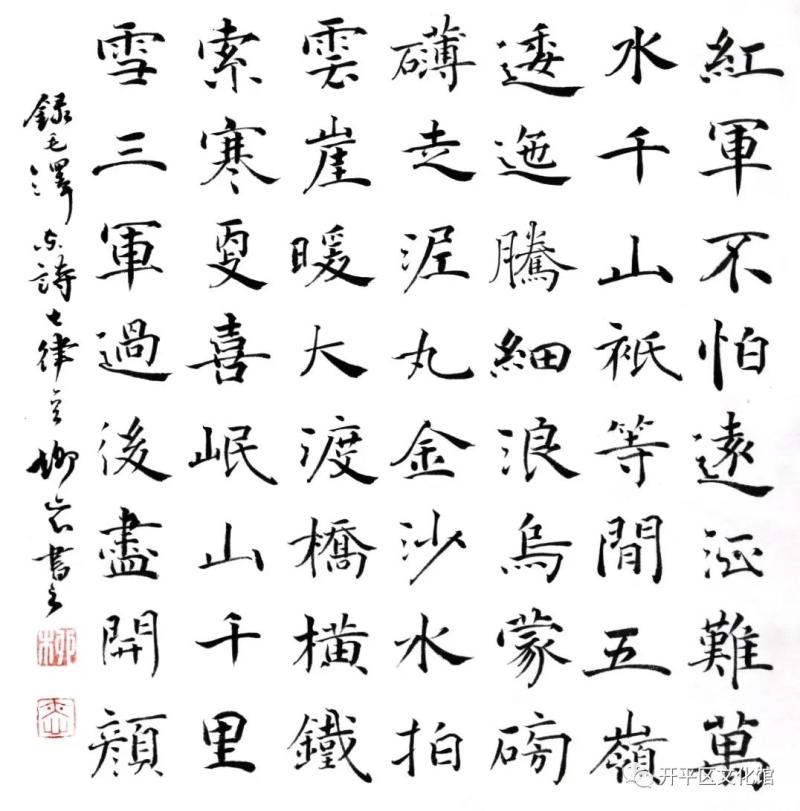 紅軍不怕遠征難萬
水千山衹等閒五嶺
逶迤騰細浪烏蒙磅
礴走泥丸金沙水拍
雲崖暖大渡橋橫鐵
索寒更喜岷山千里
雪三軍過後盡開顏
録毛澤东詩七律 柳岩書
柳
开平区文化馆